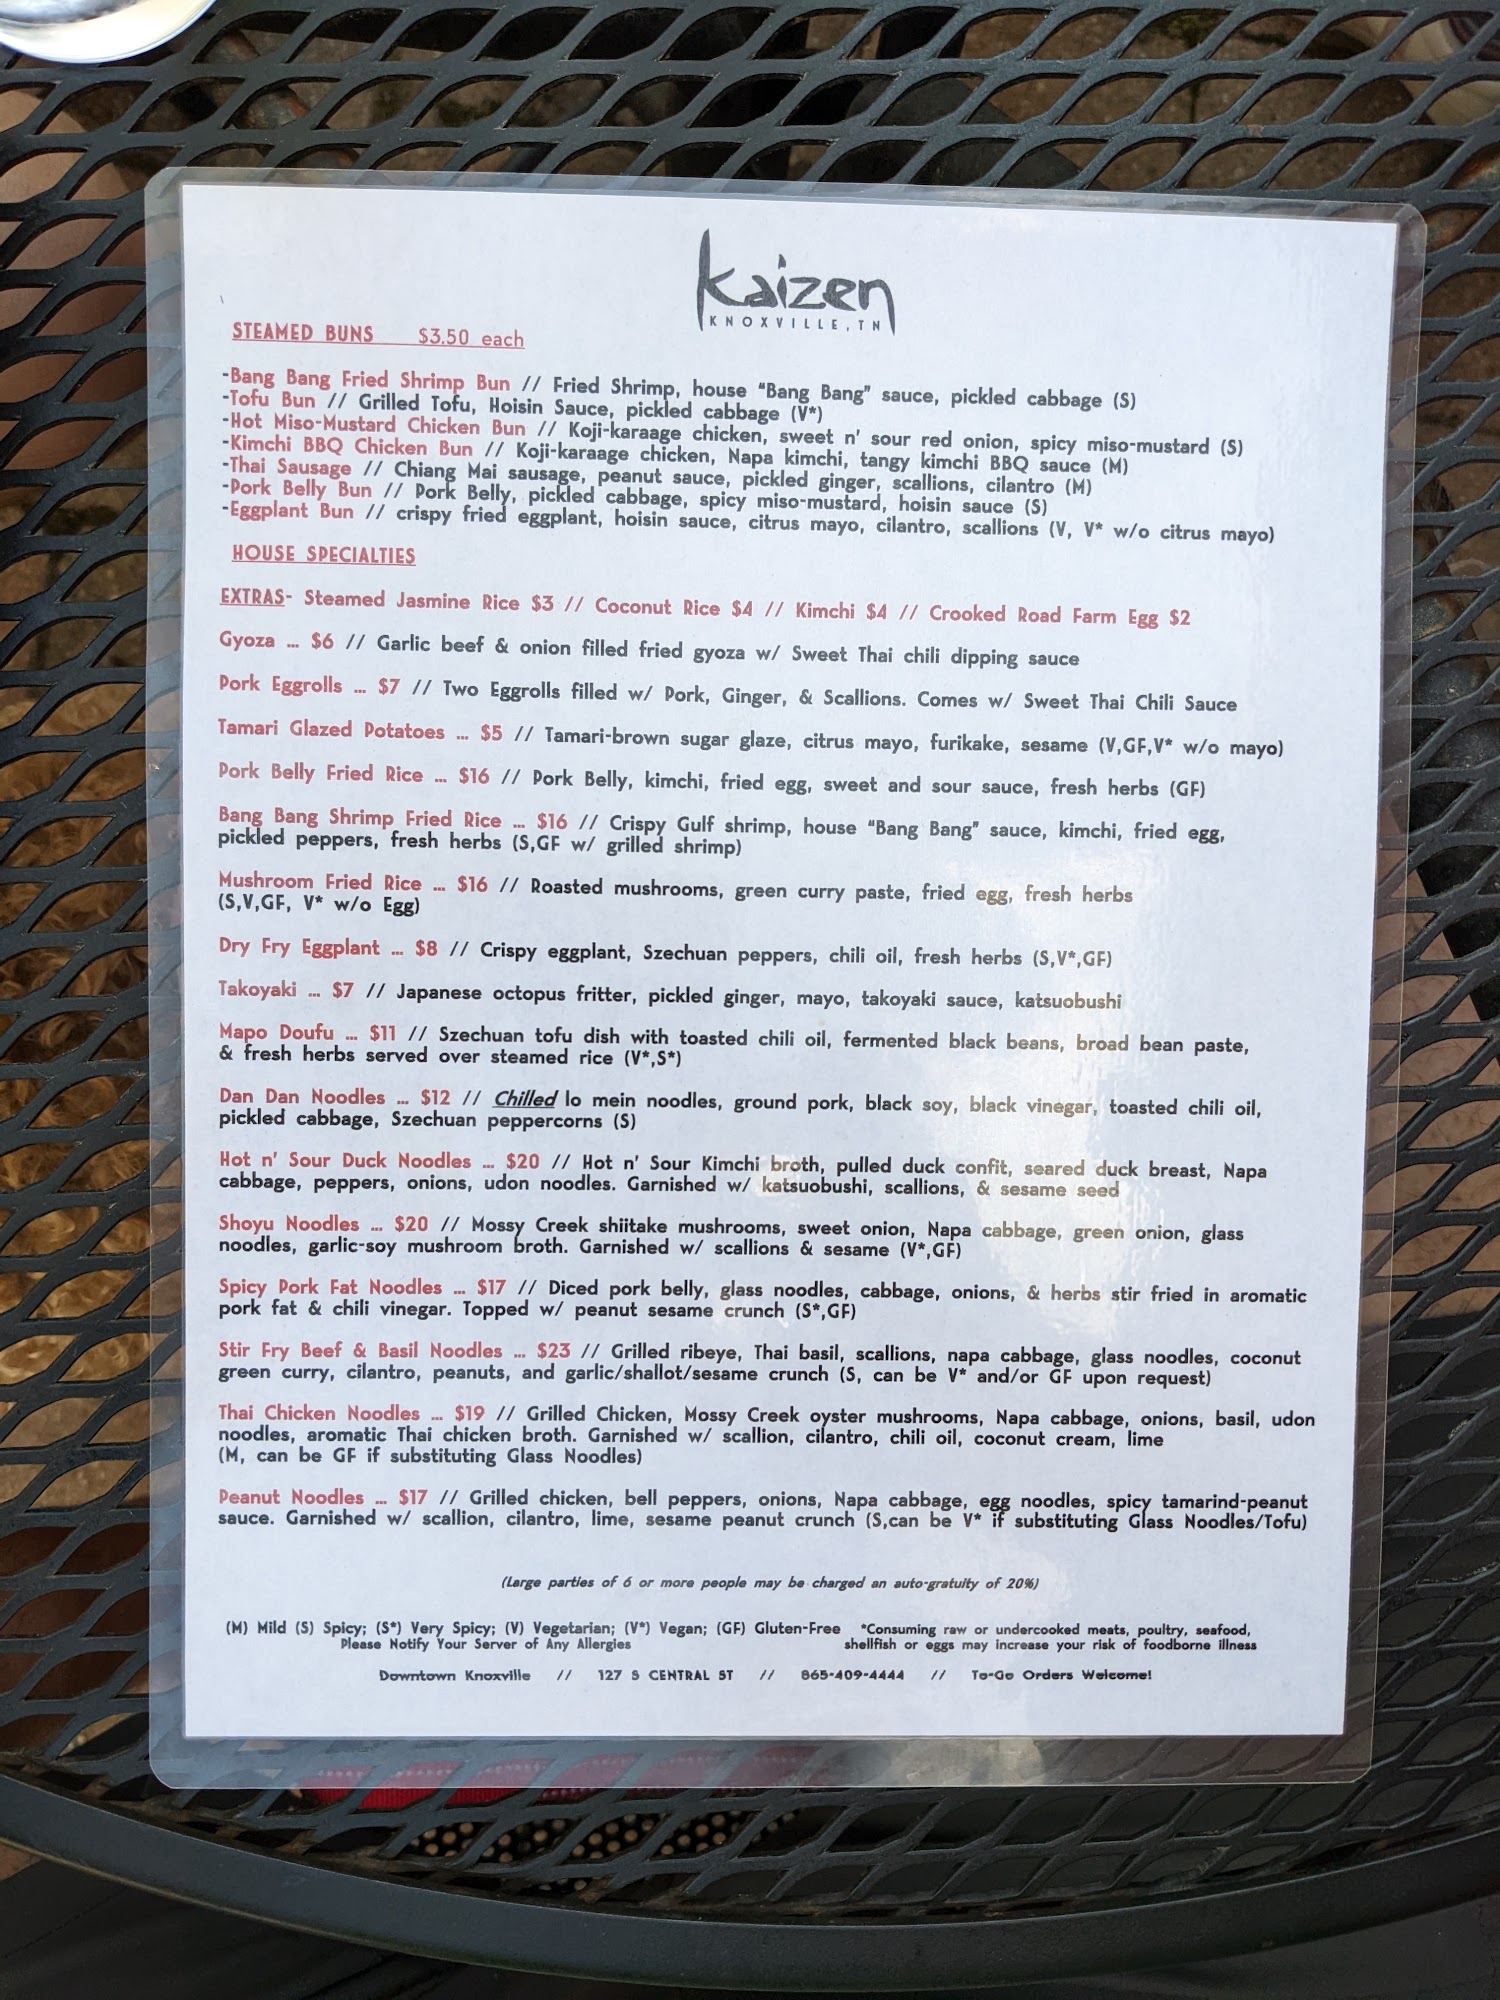 Kaizen
KNOXVILLE, TN
STEAMED BUNS $3.50 each
-Bang Bang Fried Shrimp Bun // Fried Shrimp, house “Bang Bang” sauce, pickled cabbage (S)
-Tofu Bun // Grilled Tofu, Hoisin Sauce, pickled cabbage (V*)
-Hot Miso-Mustard Chicken Bun // Koji-karaage chicken, sweet n' sour red onion, spicy miso-mustard (S)
-Kimchi BBQ Chicken Bun // Koji-karaage chicken, Napa kimchi, tangy kimchi BBQ sauce (M)
-Thai Sausage // Chiang Mai sausage, peanut sauce, pickled ginger, scallions, cilantro (M)
-Pork Belly Bun // Pork Belly, pickled cabbage, spicy miso-mustard, hoisin sauce (S)
-Eggplant Bun // crispy fried eggplant, hoisin sauce, citrus mayo, cilantro, scallions (V, V* w/o citrus mayo)
HOUSE SPECIALTIES
EXTRAS- Steamed Jasmine Rice $3 // Coconut Rice $4 // Kimchi $4 // Crooked Road Farm Egg $2
Gyoza ... $6 // Garlic beef & onion filled fried gyoza w/ Sweet Thai chili dipping sauce
Pork Eggrolls ... $7 // Two Eggrolls filled w/ Pork, Ginger, & Scallions. Comes w/ Sweet Thai Chili Sauce
Tamari Glazed Potatoes ... $5 // Tamari-brown sugar glaze, citrus mayo, furikake, sesame (V,GF,V* w/o mayo)
Pork Belly Fried Rice ... $16 // Pork Belly, kimchi, fried egg, sweet and sour sauce, fresh herbs (GF)
Bang Bang Shrimp Fried Rice ... $16 // Crispy Gulf shrimp, house “Bang Bang” sauce, kimchi, fried egg,
pickled peppers, fresh herbs (S,GF w/ grilled shrimp)
Mushroom Fried Rice ... $16 // Roasted mushrooms, green curry paste, fried egg, fresh herbs
(S,V,GF, V* w/o Egg)
Dry Fry Eggplant ... $8 // Crispy eggplant, Szechuan peppers, chili oil, fresh herbs (S,V*,GF)
Takoyaki ... $7 // Japanese octopus fritter, pickled ginger, mayo, takoyaki sauce, katsuobushi
Mapo Doufu ... $11 // Szechuan tofu dish with toasted chili oil, fermented black beans, broad bean paste,
& fresh herbs served over steamed rice (V*,S*)
Dan Dan Noodles ... $12 // Chilled lo mein noodles, ground pork, black soy, black vinegar, toasted chili oil,
pickled cabbage, Szechuan peppercorns (S)
Hot n' Sour Duck Noodles ... $20 // Hot n' Sour Kimchi broth, pulled duck confit, seared duck breast, Napa
cabbage, peppers, onions, udon noodles. Garnished w/ katsuobushi, scallions, & sesame seed
Shoyu Noodles ... $20 // Mossy Creek shiitake mushrooms, sweet onion, Napa cabbage, green onion, glass
noodles, garlic-soy mushroom broth. Garnished w/ scallions & sesame (V*,GF)
Spicy Pork Fat Noodles ... $17 // Diced pork belly, glass noodles, cabbage, onions, & herbs stir fried in aromatic
pork fat & chili vinegar. Topped w/ peanut sesame crunch (S*,GF)
Stir Fry Beef & Basil Noodles ... $23 // Grilled ribeye, Thai basil, scallions, napa cabbage, glass noodles, coconut
green curry, cilantro, peanuts, and garlic/shallot/sesame crunch (S, can be V* and/or GF upon request)
Thai Chicken Noodles ... $19 // Grilled Chicken, Mossy Creek oyster mushrooms, Napa cabbage, onions, basil, udon
noodles, aromatic Thai chicken broth. Garnished w/ scallion, cilantro, chili oil, coconut cream, lime
(M, can be GF if substituting Glass Noodles)
Peanut Noodles ... $17 // Grilled chicken, bell peppers, onions, Napa cabbage, egg noodles, spicy tamarind-peanut
sauce. Garnished w/ scallion, cilantro, lime, sesame peanut crunch (S,can be V* if substituting Glass Noodles/Tofu)
(Large parties of 6 or more people may be charged an auto-gratuity of 20%)
(M) Mild (S) Spicy; (S*) Very Spicy; (V) Vegetarian; (V*) Vegan; (GF) Gluten-Free *Consuming raw or undercooked meats, poultry, seafood,
Please Notify Your Server of Any Allergies shellfish or eggs may increase your risk of foodborne illness
Downtown Knoxville // 127 S CENTRAL ST // 865-409-4444 // To-Go Orders Welcome!